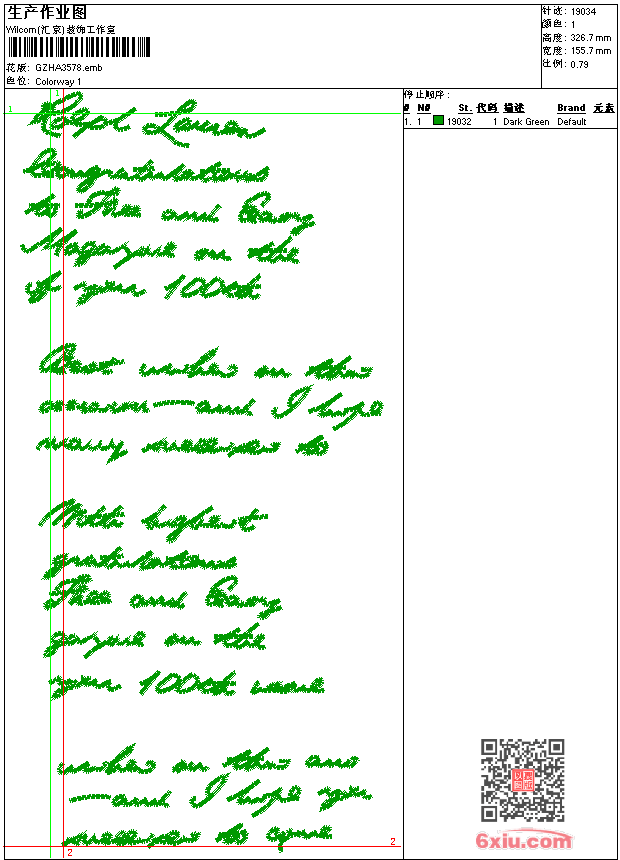 生产作业图
Wilcom(汇京)装饰工作室
花版: GZHA3578.emb
色位: Colorway 1
针迹: 19034
颜色: 1
高度: 326.7 mm
宽度: 155.7 mm
比例: 0.79
停止顺序:
# N# St. 代码 描述 Brand 元素
1. 1 19032 1 Dark Green Default
1
1
Lauren
Congratulations
to Thee and Gary
Magazine on the
of your 100th
Best wishes on this
occasion — and I hope
many
With highest
gratulations
Thee and Gary
gazine on the
your 100th
wishes on this
— and I hope you
to
2
2
6xiu.com